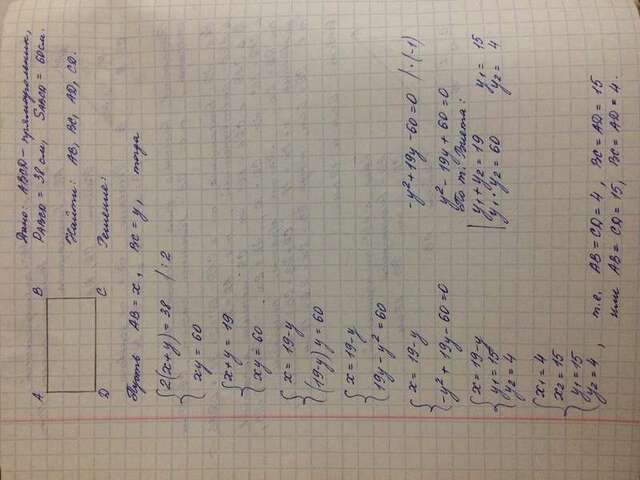 Дано: ABCD – прямоугольник,
P ABCD = 38 см, S ABCD = 60 см.
A B
D C
Найти: AB, BC, AD, CD.
Решение:
Пусть AB = x, BC = y, тогда
{ 2(x+y) = 38 | :2
xy = 60
{ x+y = 19
xy = 60
{ x = 19-y
(19-y)y = 60
{ x = 19-y
19y - y² = 60
{ x = 19-y
-y² + 19y - 60 = 0
-y² + 19y - 60 = 0 | ·(-1)
y² - 19y + 60 = 0
По т. Виета:
y₁ + y₂ = 19 y₁ = 15
y₁ · y₂ = 60 y₂ = 4
{ x = 19-y
y₁ = 15
y₂ = 4
{ x₁ = 4
x₂ = 15
y₁ = 15
y₂ = 4, т.е. AB = CD = 4, BC = AD = 15
или AB = CD = 15, BC = AD = 4.